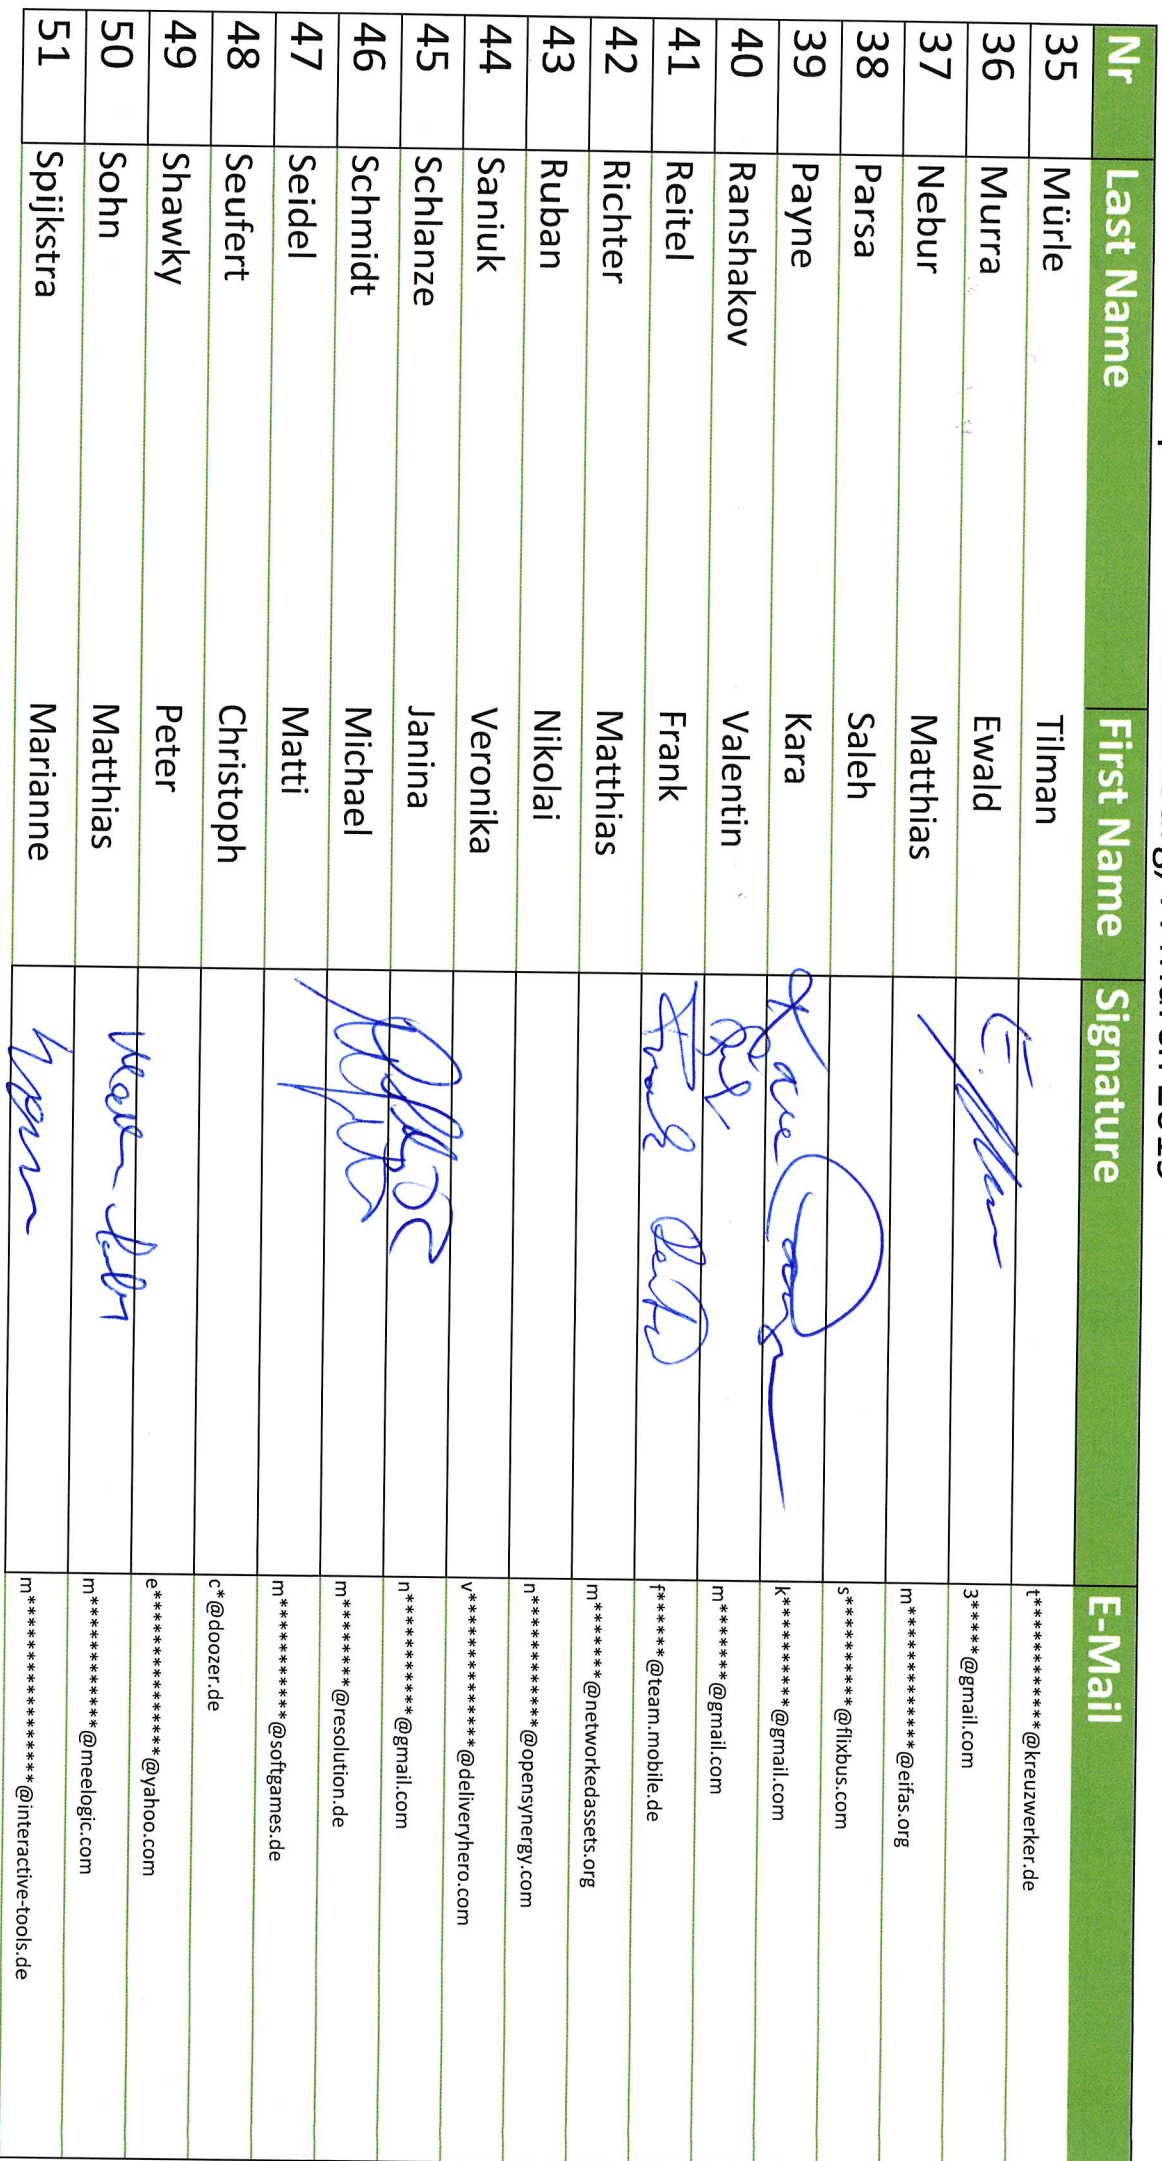 Nr Last Name First Name Signature E-Mail
35 Mürle Tilman t************@kreuzwerker.de
36 Murra Ewald 3*****@gmail.com
37 Nebur Matthias m*************@eifas.org
38 Parsa Saleh s**********@flixbus.com
39 Payne Kara k**********@gmail.com
40 Ranshakov Valentin m*******@gmail.com
41 Reitel Frank Frank Reitel f******@team.mobile.de
42 Richter Matthias m*******@networkedassets.org
43 Ruban Nikolai n************@opensynergy.com
44 Saniuk Veronika v**************@deliveryhero.com
45 Schlanze Janina n************@gmail.com
46 Schmidt Michael m**********@resolution.de
47 Seidel Matti m************@softgames.de
48 Seufert Christoph c*@doozer.de
49 Shawky Peter e****************@yahoo.com
50 Sohn Matthias m**************@meelogic.com
51 Spijkstra Marianne m*******************@interactive-tools.de